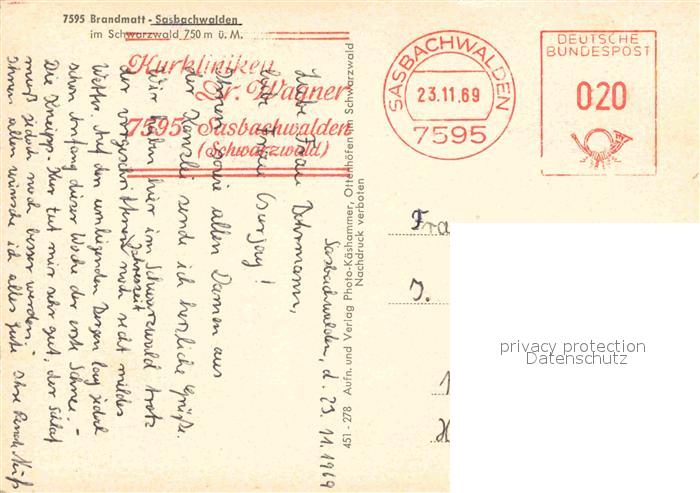 7595 Brandmatt - Sasbachwalden
im Schwarzwald 750 m ü. M.
Kurkliniken
Dr. Wagner
7595 Sasbachwalden
(Schwarzwald)
SASBACHWALDEN
23.11.69
7595
DEUTSCHE
BUNDESPOST
020
451 - 278 Aufn. und Verlag Photo-Käshammer, Ottenhöfen im Schwarzwald
Nachdruck verboten
Sasbachwalden, d. 23.11.1969
Liebe Frau
liebe Frau
Ihnen sowie allen Damen aus
der Kanzlei sende ich herzliche Grüße.
Wir haben hier im Schwarzwald trotz
der vorgeschrittenen Jahreszeit noch recht mildes
Wetter. Auf den umliegenden Bergen lag jedoch
schon Anfang dieser Woche der erste Schnee. -
Die Kneipp-Kur tut mir sehr gut, der Schlaf
muß jedoch noch besser werden. -
Ihnen allen wünsche ich alles Gute Ihre
Fra
J.
privacy protection
Datenschutz